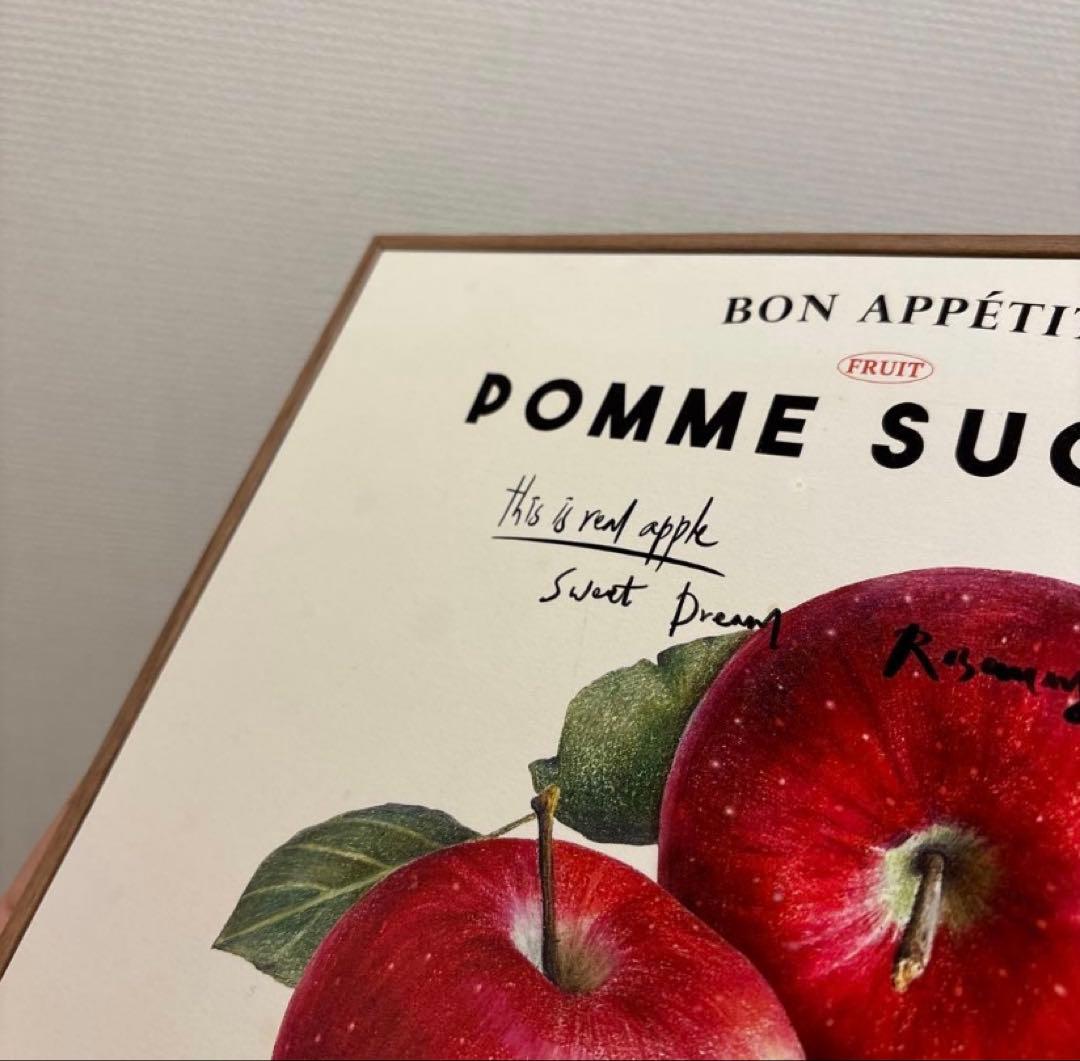 BON APPÉTIT
FRUIT
POMME SUC
this is real apple
Sweet Dream
Rosemary